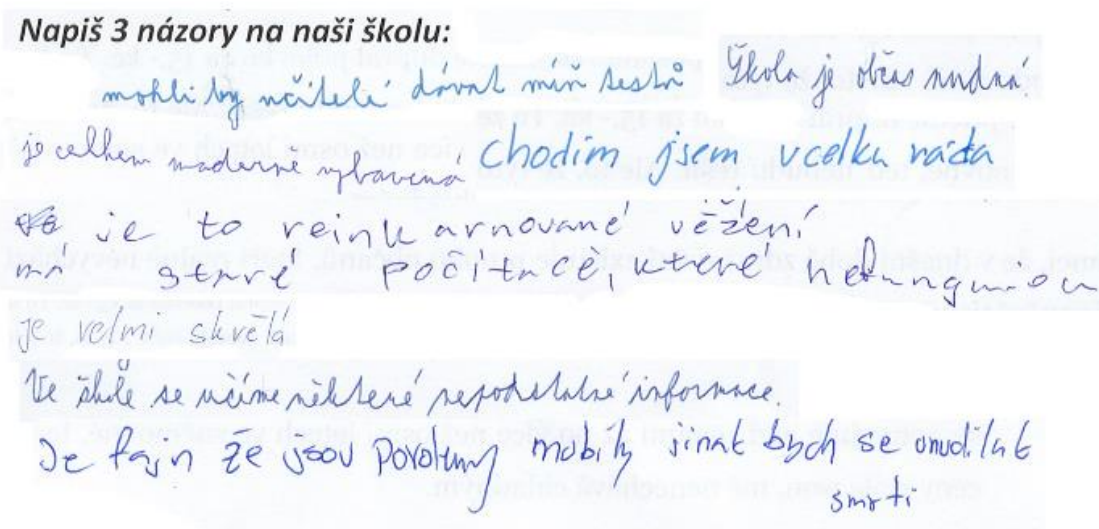 Napiš 3 názory na naši školu:
mohli by učitelé dávat míň testů
Škola je občas nudná.
je celkem moderně vybavená
Chodím jsem vcelku ráda
je to reinkarnované věžení
má staré počítače, které nefungujou
je velmi skvělá
Ve škole se učíme některé nepodstatné informace.
Je fajn že jsou povoleny mobily jinak bych se unudil k
smrti